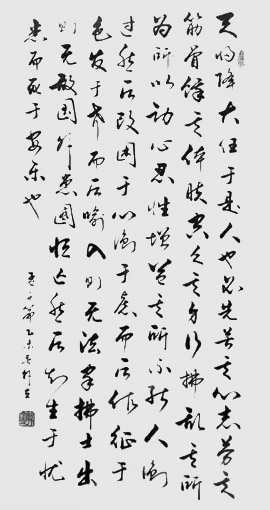 天将降大任于是人也必先苦其心志劳其
筋骨饿其体肤空乏其身行拂乱其所
为所以动心忍性增益其所不能人衡
过然后改困于心衡于虑而后作征于
色发于声而后喻入则无法家拂士出
则无敌国外患国恒亡然后知生于忧
患而死于安乐也
孟子篇乙未